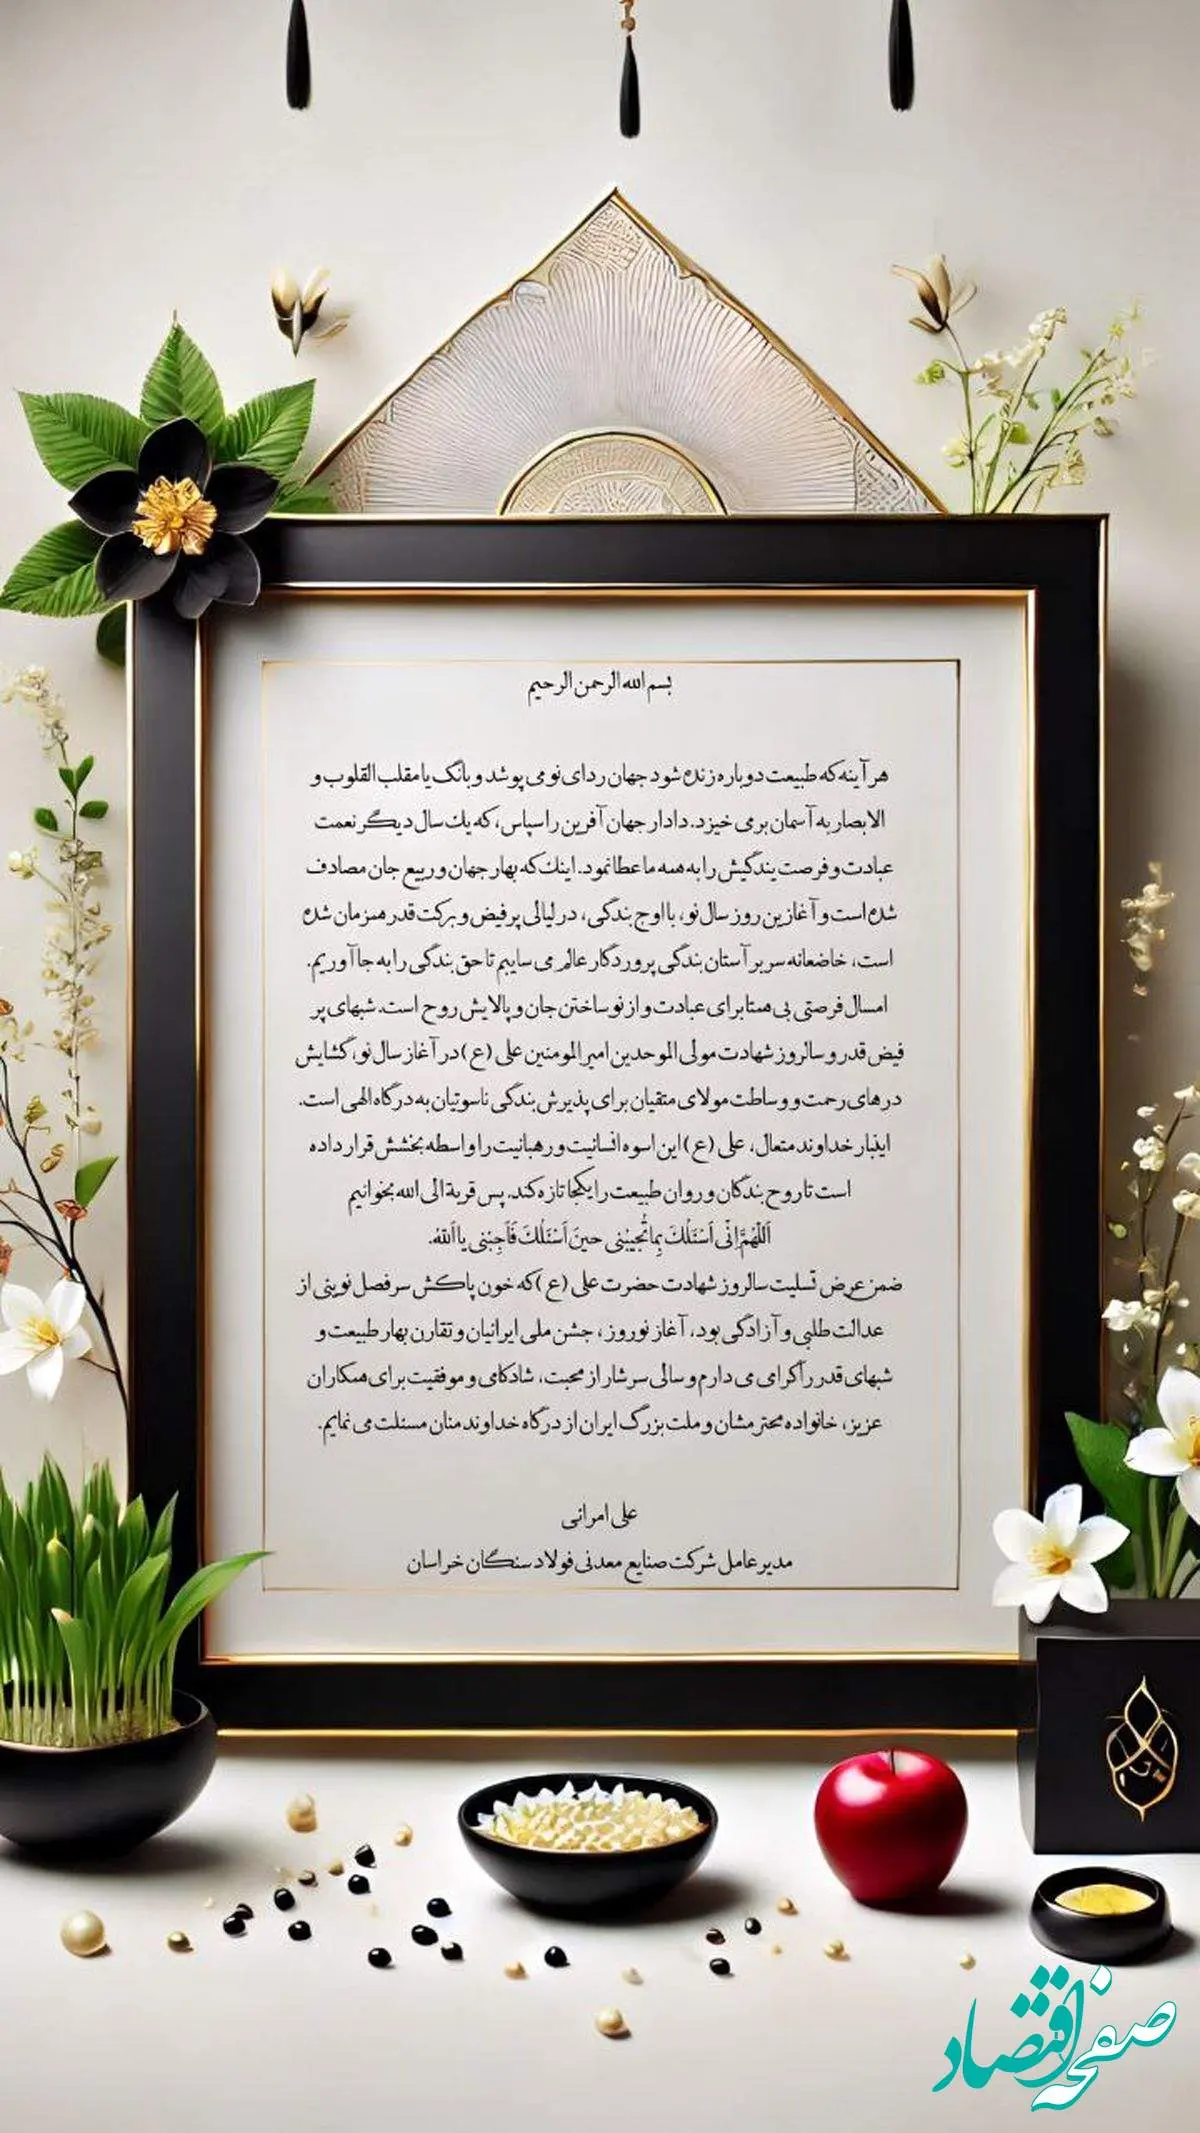 بسم الله الرحمن الرحیم
هر آینه که طبیعت دوباره زنده شود جهان ردای نو می پوشد و بانگ یا مقلب القلوب و
الابصار به آسمان بر می خیزد. دادار جهان آفرین را سپاس، که یک سال دیگر نعمت
عبادت و فرصت بندگیش را به همه ما عطا نمود. اینک که بهار جهان و ربیع جان مصادف
شده است و آغازین روز سال نو، با اوج بندگی، در لیالی پر فیض و برکت قدر همزمان شده
است، خاضعانه سر بر آستان بندگی پروردگار عالم می ساییم تا حق بندگی را به جا آوریم.
امسال فرصتی بی همتا برای عبادت و از نو ساختن جان و پالایش روح است. شبهای پر
فیض قدر و سالروز شهادت مولی الموحدین امیرالمومنین علی (ع) در آغاز سال نو، گشایش
درهای رحمت و وساطت مولای متقیان برای پذیرش بندگی ناسوتیان به درگاه الهی است.
اینبار خداوند متعال، علی (ع) این اسوه انسانیت و رهبانیت را واسطه بخشش قرار داده
است تا روح بندگان و روان طبیعت را یکجا تازه کند. پس قربة الی الله بخوانیم
اَللّهُمَّ اِنّی اَسْئَلُکَ بِما تُجیبُنی حینَ اَسْئَلُکَ فَاَجِبْنی یا اَللّهُ.
ضمن عرض تسلیت سالروز شهادت حضرت علی (ع) که خون پاکش سرفصل نوینی از
عدالت طلبی و آزادگی بود، آغاز نوروز، جشن ملی ایرانیان و تقارن بهار طبیعت و
شبهای قدر را گرامی می دارم و سالی سرشار از محبت، شادکامی و موفقیت برای همکاران
عزیز، خانواده محترمشان و ملت بزرگ ایران از درگاه خداوند منان مسئلت می نمایم.
علی امرانی
مدیر عامل شرکت صنایع معدنی فولاد سنگان خراسان
صفحه اقتصاد